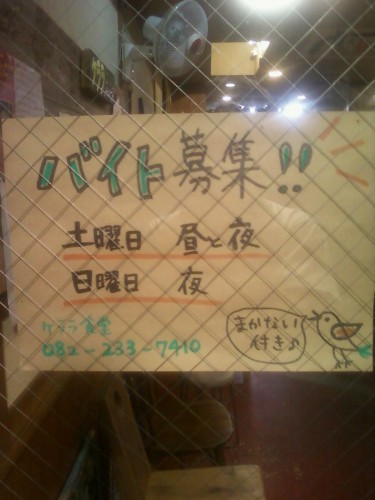 バイト募集!!
土曜日 昼と夜
日曜日 夜
ケララ食堂
082-233-7410
まかない
付き♪